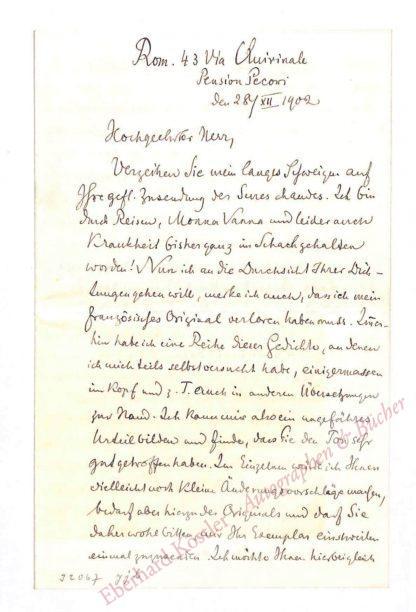 Rom. 43 Via Quirinale
Pension Pecori
den 28/XII 1902
Hochgeehrter Herr,
Verzeihen Sie mein langes Schweigen auf
Ihre gefl. Zusendung des Serres chaudes. Ich bin
durch Reisen, Monna Vanna und leider auch
Krankheit bisher ganz in Schach gehalten
worden! Nun ich an die Durchsicht Ihrer Dich-
tungen gehen will, merke ich auch, dass ich mein
französisches Original verloren haben muss. Immer-
hin habe ich eine Reihe dieser Gedichte, an denen
ich mich teils selbst versucht habe, einigermassen
im Kopf und z. T. auch in anderen Übersetzungen
zur Hand. Ich kann mir also ein ungefähres
Urteil bilden und finde, dass Sie den Ton sehr
gut getroffen haben. Im Einzelnen würde ich Ihnen
vielleicht noch kleine Änderungsvorschläge machen,
bedarf aber hierzu des Originals und darf Sie
daher wohl bitten, mir Ihr Exemplar einstweilen
einmal zuzusenden. Ich möchte Ihnen hierbei gleich
J 2067
Eberhard Köstler Autographen & Bücher